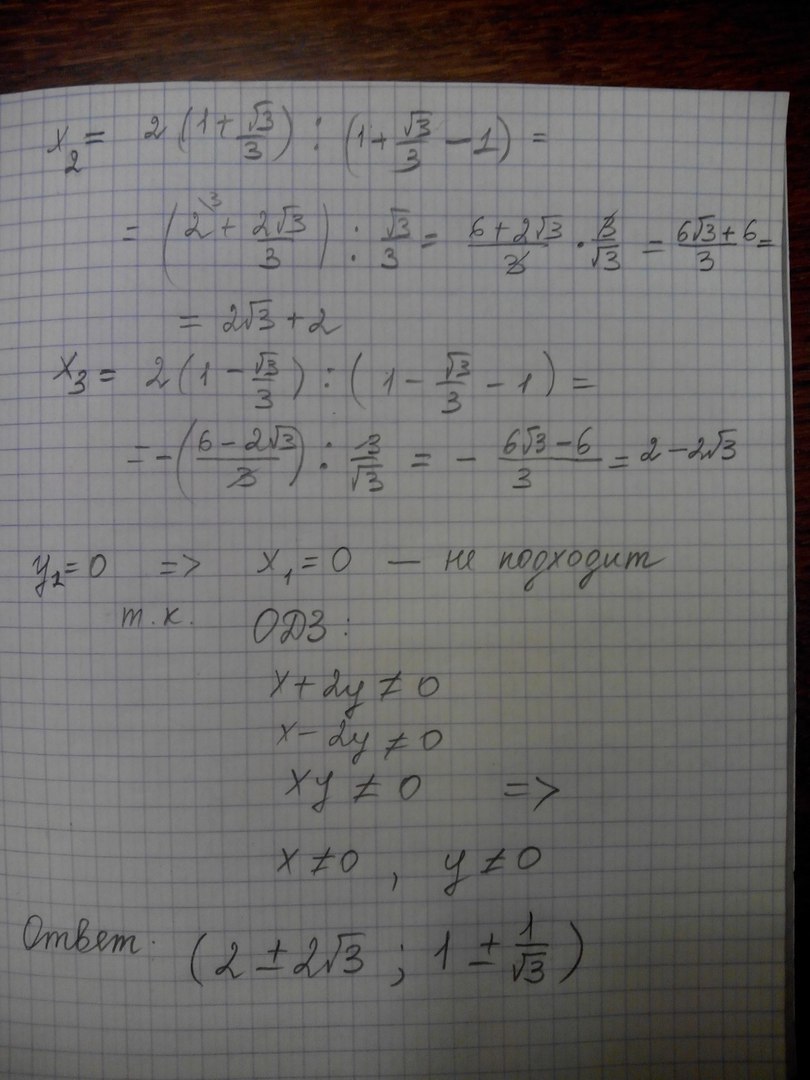 x₂ = 2(1 + √3/3) : (1 + √3/3 − 1) =
= (2^{\3} + 2√3/3) : √3/3 = (6 + 2√3)/3 · 3/√3 = (6√3 + 6)/3 =
= 2√3 + 2
x₃ = 2(1 − √3/3) : (1 − √3/3 − 1) =
= −((6 − 2√3)/3) : 3/√3 = − (6√3 − 6)/3 = 2 − 2√3
y₁ = 0 => x₁ = 0 — не подходит
т.к. ОДЗ:
x + 2y ≠ 0
x − 2y ≠ 0
xy ≠ 0 =>
x ≠ 0 , y ≠ 0
Ответ. (2 ± 2√3 ; 1 ± 1/√3)